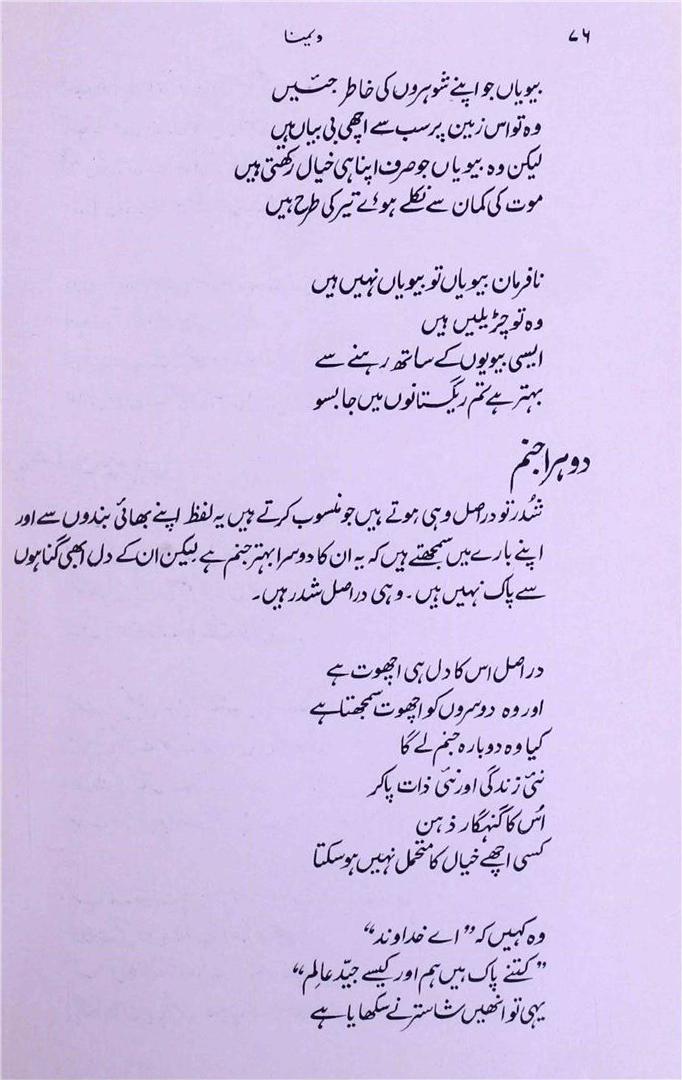 ۷۶
ویمینا
بیویاں جو اپنے شوہروں کی خاطر جئیں
وہ تو اس زمین پر سب سے اچھی بی بیاں ہیں
لیکن وہ بیویاں جو صرف اپنا ہی خیال رکھتی ہیں
موت کی کمان سے نکلے ہوئے تیر کی طرح ہیں
نافرمان بیویاں تو بیویاں نہیں ہیں
وہ تو چڑیلیں ہیں
ایسی بیویوں کے ساتھ رہنے سے
بہتر ہے تم ریگستانوں میں جا بسو
دوہرا جنم
شُدر تو دراصل وہی ہوتے ہیں جو منسوب کرتے ہیں یہ لفظ اپنے بھائی بندوں سے اور
اپنے بارے میں سمجھتے ہیں کہ یہ ان کا دوسرا بہتر جنم ہے لیکن ان کے دل ابھی گناہوں
سے پاک نہیں ہیں۔ وہی دراصل شدر ہیں۔
دراصل اس کا دل ہی اچھوت ہے
اور وہ دوسروں کو اچھوت سمجھتا ہے
کیا وہ دوبارہ جنم لے گا
نئی زندگی اور نئی ذات پا کر
اُس کا گنہگار ذہن
کسی اچھے خیال کا متحمل نہیں ہو سکتا
وہ کہیں کہ ”اے خداوند“
”کتنے پاک ہیں ہم اور کیسے جیّد عالِم“
یہی تو انھیں شاستر نے سکھایا ہے